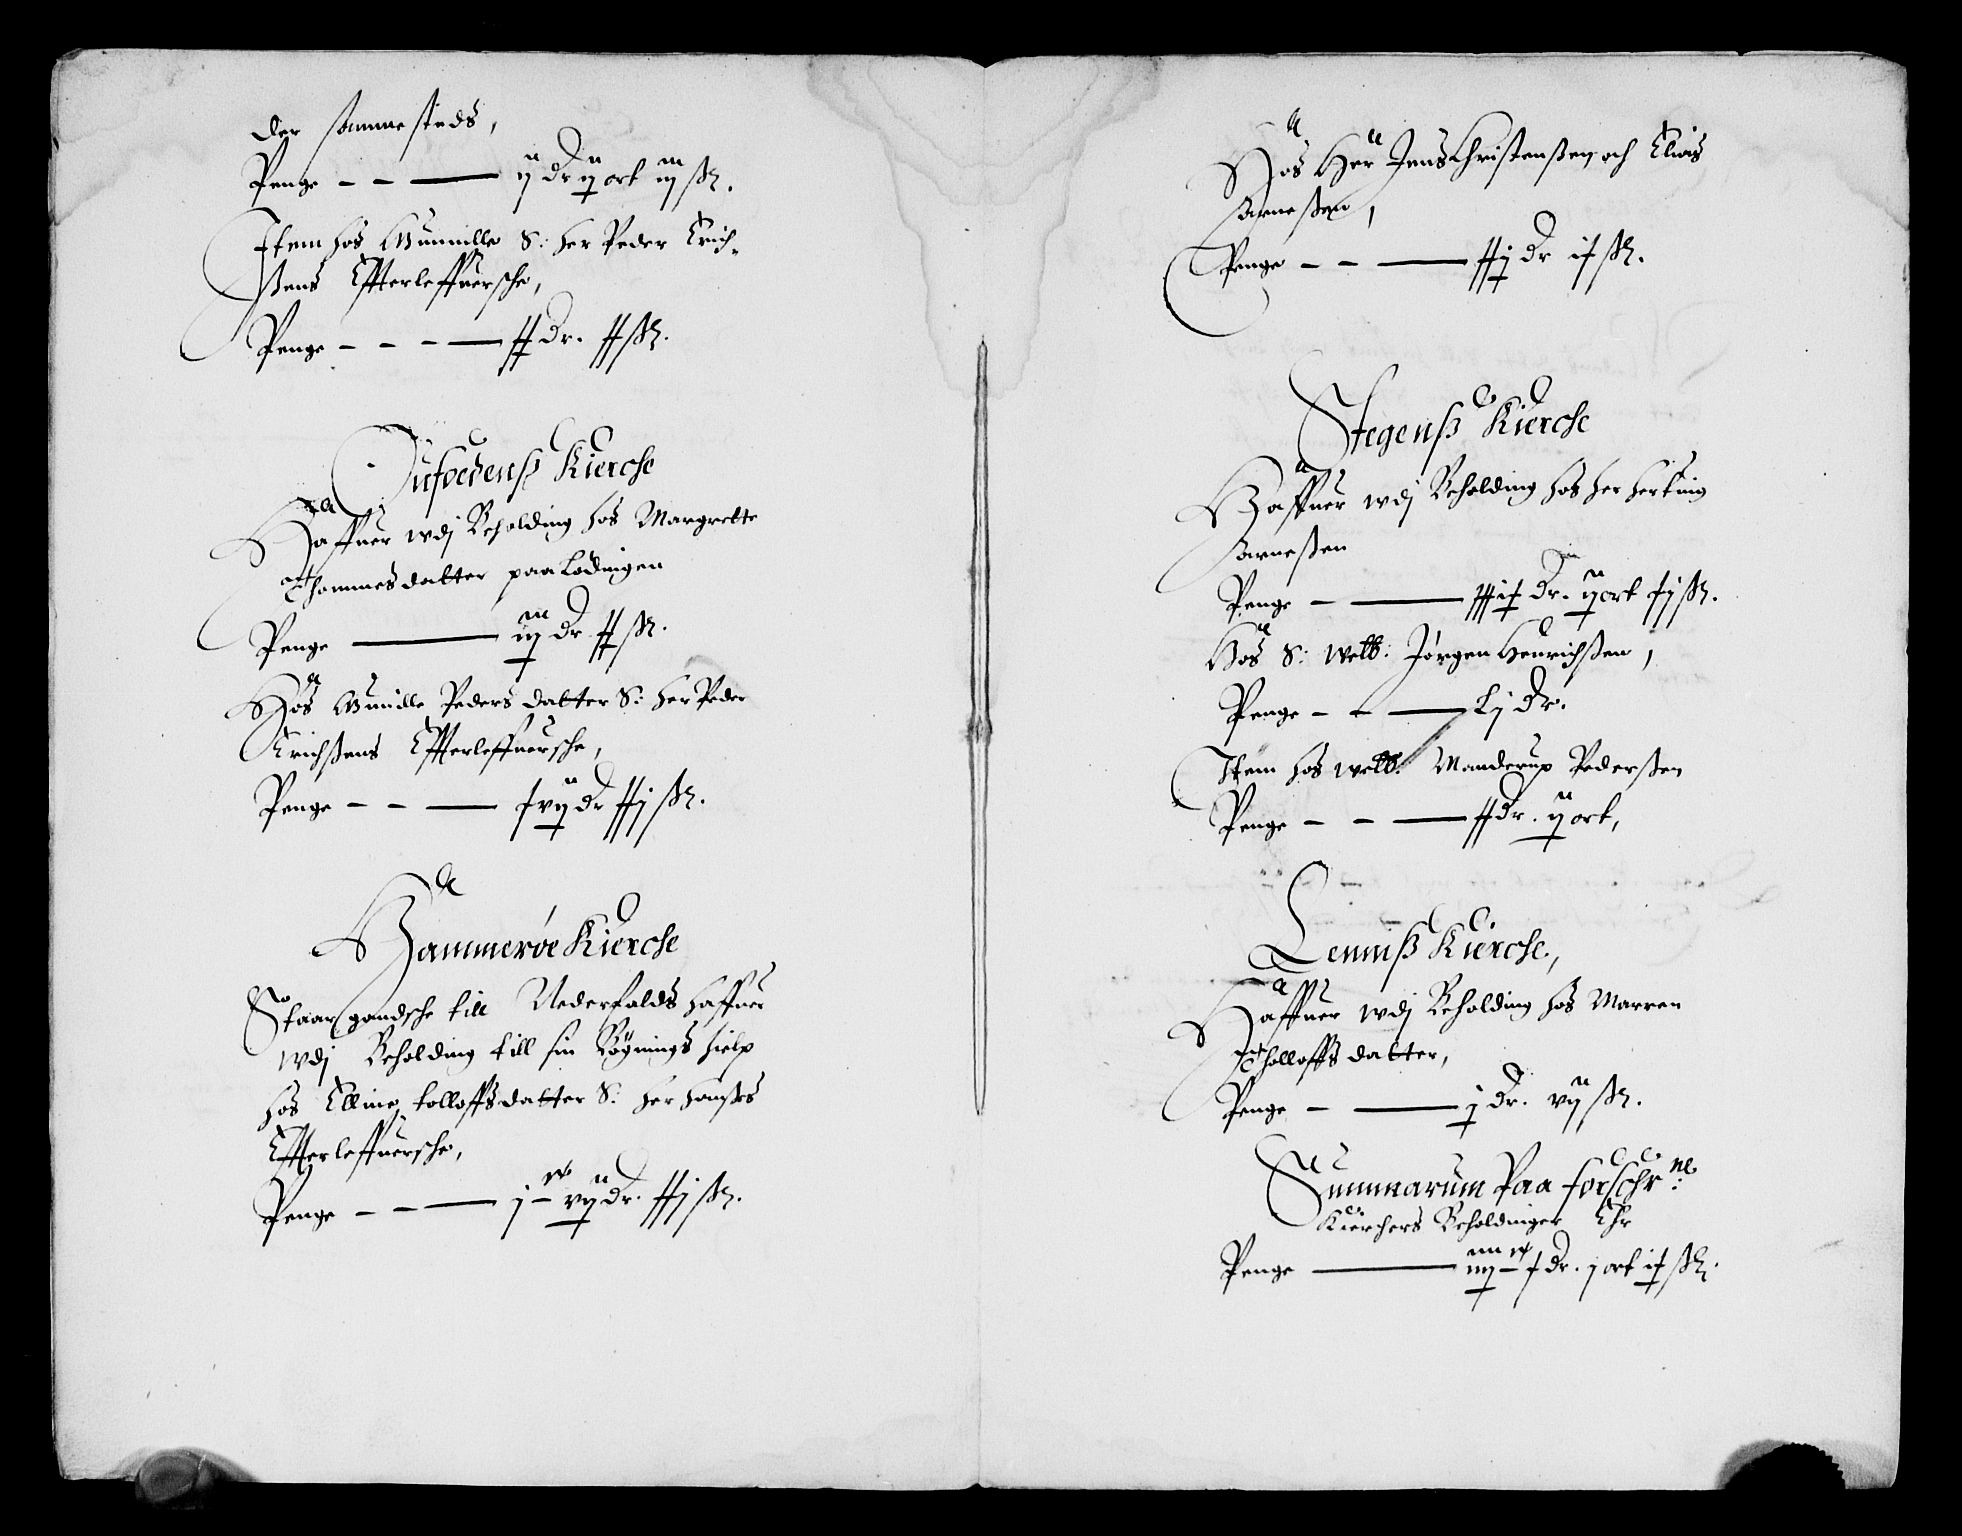 der sammesteds,
Penge - - — ij dr ij ort iij ß.
Item hos Gunnille S: her Peder Erich-
ßens Efterleffuersche,
Penge - - - — xx dr. xx ß.
Ziufvedenß Kierche
Haffuer wdj Beholding hos Margrette
Thommesdatter paa Lødingen
Penge — iij dr xx ß.
Hos Gunille Peders datter S: her Peder
Erichßens Efterleffuersche,
Penge - - — xvij dr xxj ß.
Hammerøe Kierche
Staar gandsche till Nederfalds haffuer
wdj Beholding till sin Bögnings hielp
hos Elline tolloffsdatter S: her hanses
Efterleffuersche,
Penge - - — j c vij dr. xxj ß.
Hos Her Jens Christenßen och Elias
Arneßen,
Penge - - — xxj dr ix ß.
Stegenß Kierche
Haffuer wdj Beholding hos her hertuig
Arneßen
Penge - — xxxix dr. ij ort xj ß.
Hos S: welb: Jørgen Henrichßen,
Penge - - — Lj dr.
Item hos welb: Manderup Pederßen
Penge - - — xx dr. ij ort,
Lenniß Kierche,
Haffuer wdj Beholding hos Marren
Tholloffs datter,
Penge - — j dr. vij ß.
Summarum Paa forschr:ne
Kierchers Beholdinger Ehr
Penge — iiij c x dr. j ort ix ß.